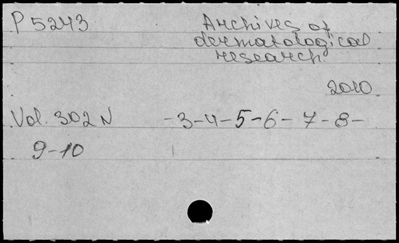 P 5243 Archives of
dermatological
research
2010
Vol. 302 N -3-4-5-6-7-8-
9-10